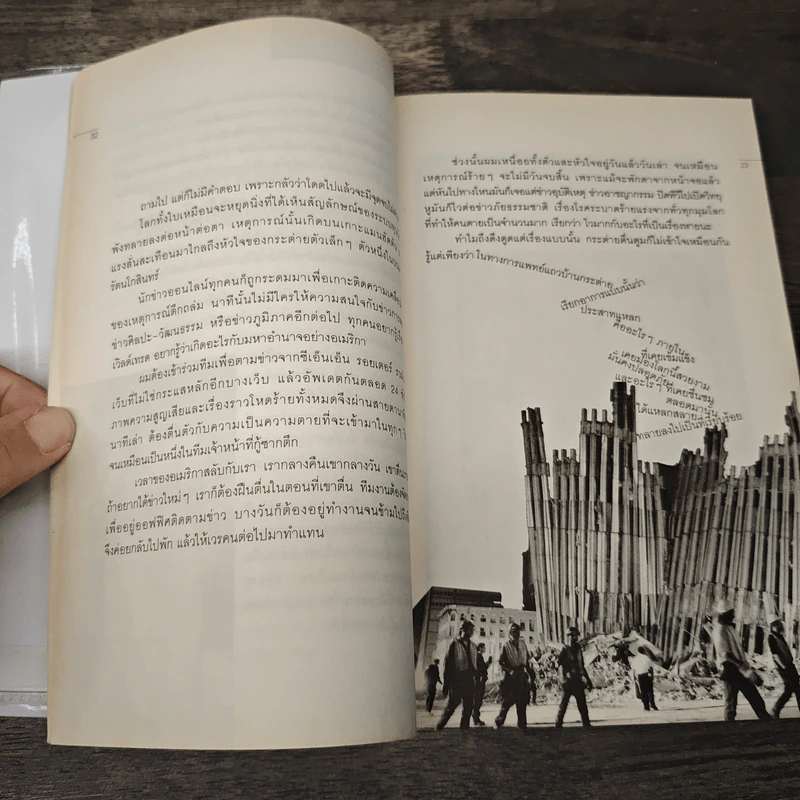 32
ถามไป แต่ก็ไม่มีคำตอบ เพราะกลัวว่าโดดไปแล้วจะมีจุดจบ
โลกทั้งใบเหมือนจะหยุดนิ่งที่ได้เห็นสัญลักษณ์ของระบบทุน
พังทลายลงต่อหน้าต่อตา เหตุการณ์นั้นเกิดบนเกาะแมนฮัตตัน
แรงสั่นสะเทือนมาไกลถึงหัวใจของกระต่ายตัวเล็กๆ ตัวหนึ่ง
รัตนโกสินทร์
นักข่าวออนไลน์ทุกคนก็ถูกระดมมาเพื่อเกาะติดความเคลื่อน
ของเหตุการณ์ตึกถล่ม นาทีนั้นไม่มีใครให้ความสนใจกับข่าว
ข่าวศิลปะ-วัฒนธรรม หรือข่าวภูมิภาคอีกต่อไป ทุกคนอยาก
เวิลด์เทรด อยากรู้ว่าเกิดอะไรกับมหาอำนาจอย่างอเมริกา
ผมต้องเข้าร่วมทีมเพื่อตามข่าวจากซีเอ็นเอ็น รอยเตอร์
เว็บที่ไม่ใช่กระแสหลักอีกบางเว็บ แล้วอัพเดตกันตลอด 24
ภาพความสูญเสียและเรื่องราวโหดร้ายทั้งหมดจึงผ่านสายตา
นาทีเล่า ต้องตื่นตัวกับความเป็นความตายที่จะเข้ามาในทุกๆ
จนเหมือนเป็นหนึ่งในทีมเจ้าหน้าที่กู้ซากตึก
เวลาของอเมริกาสลับกับเรา เรากลางคืนเขากลางวัน เขาตื่น
ถ้าอยากได้ข่าวใหม่ๆ เราก็ต้องฝืนตื่นในตอนที่เขาตื่น ทีมงานต้อง
เพื่ออยู่ออฟฟิศติดตามข่าว บางวันก็ต้องอยู่ทำงานจนข้ามไป
จึงค่อยกลับไปพัก แล้วให้เวรคนต่อไปมาทำแทน
ช่วงนั้นผมเหนื่อยทั้งตัวและหัวใจอยู่วันแล้ววันเล่า จนเหมือน
เหตุการณ์ร้ายๆ จะไม่มีวันจบสิ้น เพราะแม้จะพักตาจากหน้าจอแล้ว
แต่หันไปทางไหนมันก็เจอแต่ข่าวอุบัติเหตุ ข่าวอาชญากรรม ปิดทีวีไปเปิดวิทยุ
หูมันก็ไวต่อข่าวภัยธรรมชาติ เรื่องโรคระบาดร้ายแรงจากทั่วทุกมุมโลก
ที่ทำให้คนตายเป็นจำนวนมาก เรียกว่า ไวมากกับอะไรที่เป็นเรื่องหายนะ
ทำไมถึงดึงดูดแต่เรื่องแบบนั้น กระต่ายตื่นตูมก็ไม่เข้าใจเหมือนกัน
รู้แต่เพียงว่า ในทางการแพทย์แถวบ้านกระต่าย
เรียกอาการแบบนั้นว่า
ประสาทแหลก
คืออะไรๆ ภายในซึ่ง
ที่เคยเข้มแข็ง
เคยมองโลกนี้สวยงาม
มั่นคงปลอดภัย
และอะไรๆ ที่เคยชื่นชม
ตลอดมานั้น
ได้แหลกสลาย
ทลายลงไปเป็นที่เรียบร้อย